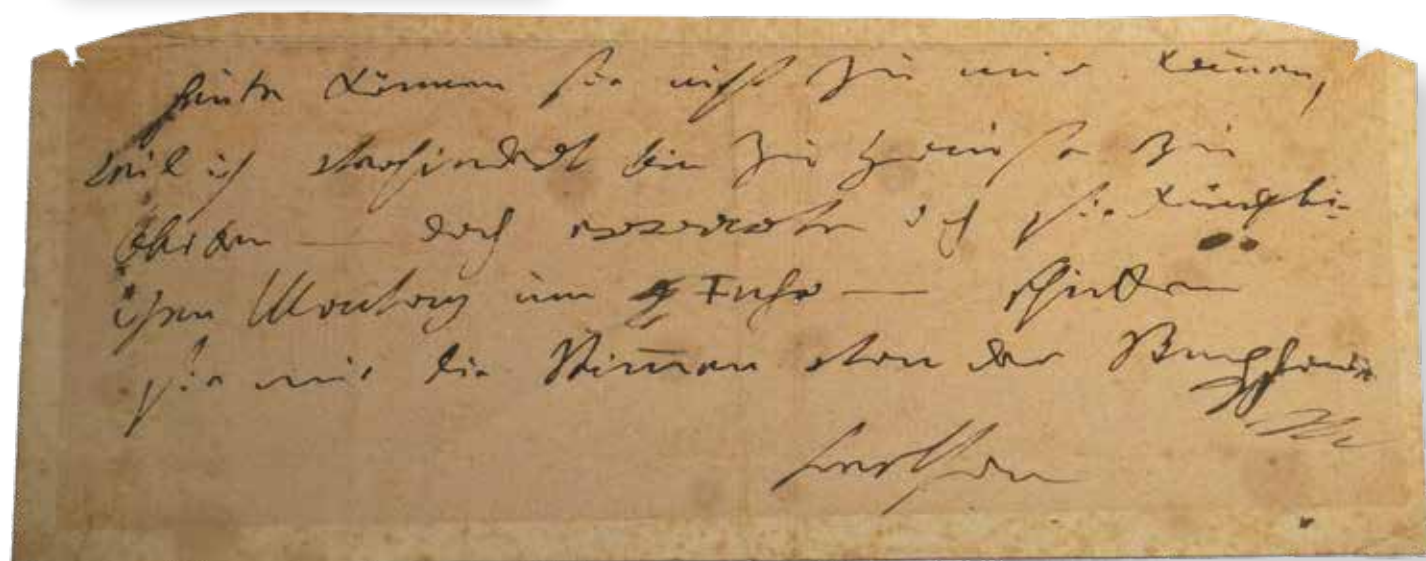 Heute können sie nicht zu mir kommen,
weil ich verhindert bin zu Hause zu
bleiben — doch erwarte ich sie künfti-
gen Montag um Uhr — schicken
sie mir die Stimmen von der Simphonie
Ihr
Beethoven